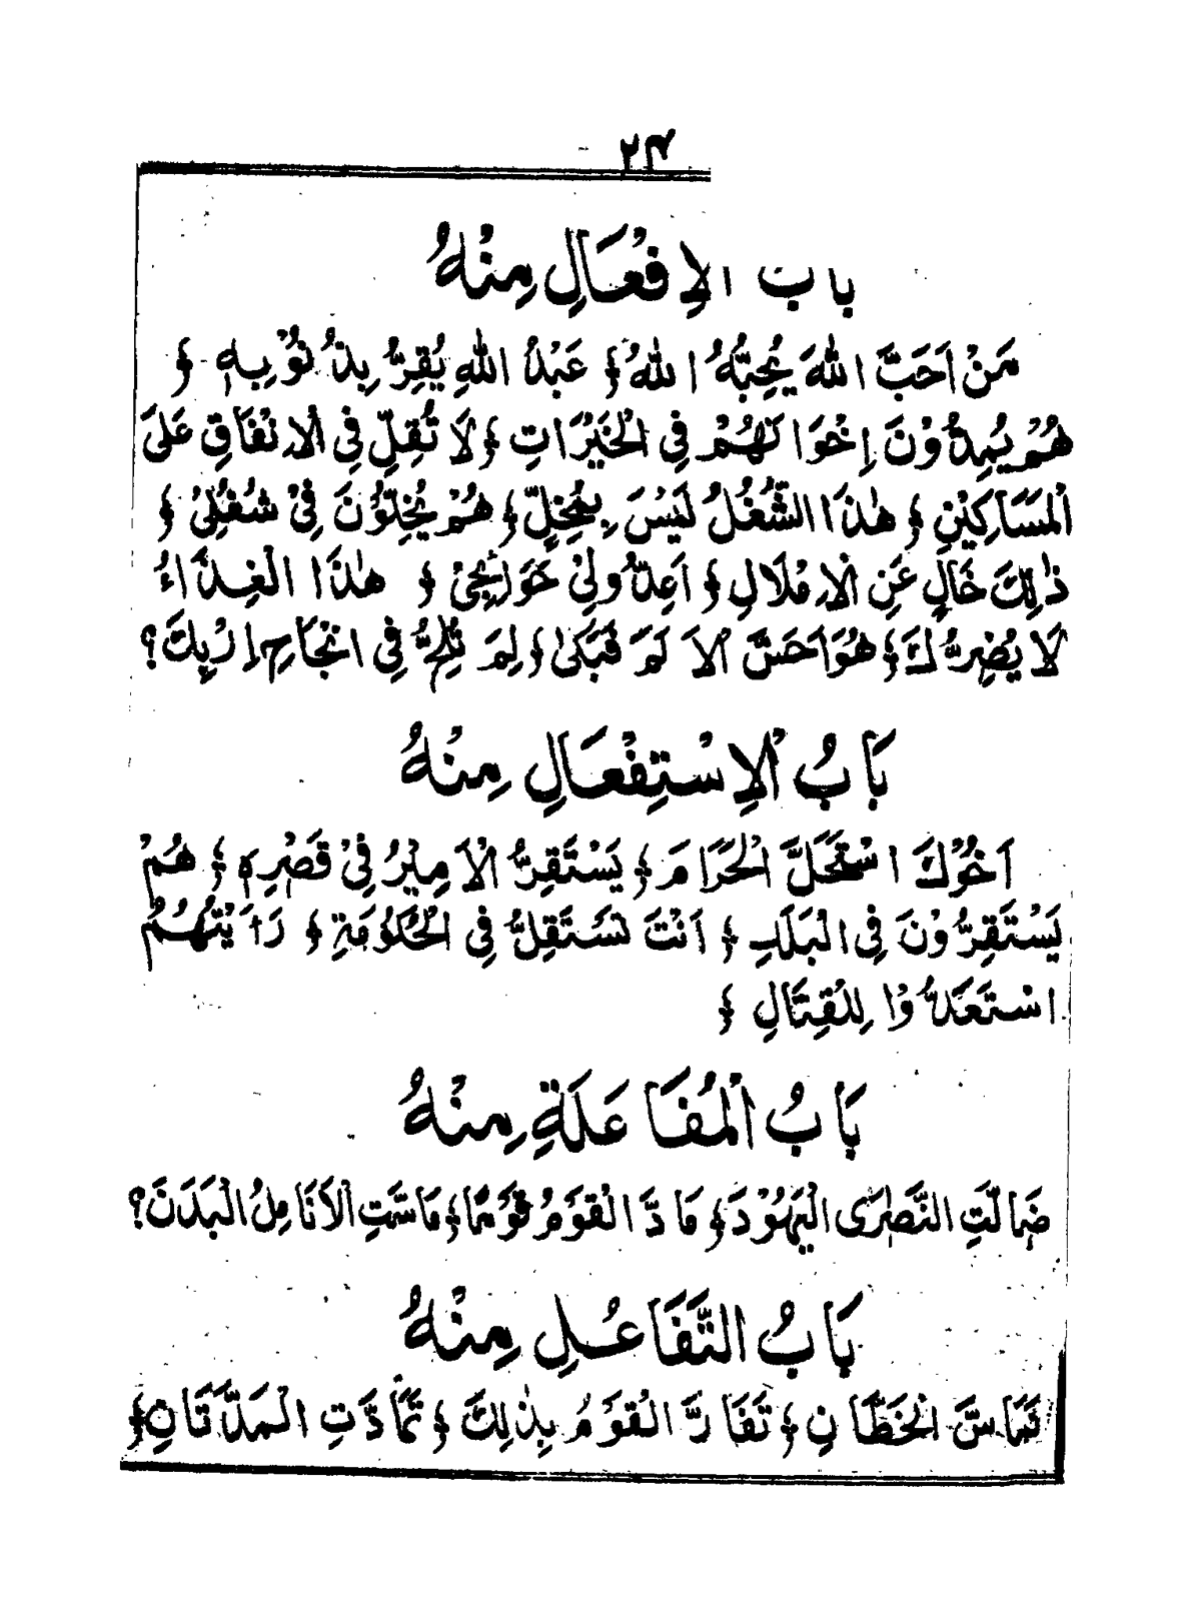 ۲۴
بابُ الْاِفْعَالِ مِنْهُ
مَنْ اَحَبَّ اللهَ يُحِبُّهُ اللهُ ﴾ عَبْدُ اللهِ يُقِرُّ بِذُنُوْبِهٖ ﴾
هُمْ يُمِدُّوْنَ اِخْوَانَهُمْ فِي الْخَيْرَاتِ ﴾ لَا تُقِلِّ فِي الْاِنْفَاقِ عَلَى
الْمَسَاكِيْنِ ﴾ هٰذَا الشُّغُلُ لَيْسَ بِمُخِلٍّ ﴾ هُمْ يُخِلُّوْنَ فِيْ شُغُلِيْ ﴾
ذٰلِكَ خَالٍ عَنِ الْاِمْلَالِ ﴾ اَعِدُّوْلِيْ حَوَائِجِيْ ﴾ هٰذَا الْغِذَاءُ
لَا يُضِرُّكَ ﴾ هُوَ اَحَسَّ الْاَلَمَ فَبَكٰى ﴾ لِمَ تُلِحُّ فِي انْجَاحِ اِرْبِكَ؟
بَابُ الْاِسْتِفْعَالِ مِنْهُ
اَخُوْكَ اسْتَحَلَّ الْحَرَامَ ﴾ يَسْتَقِرُّ الْاَمِيْرُ فِيْ قَصْرِهٖ ﴾ هُمْ
يَسْتَقِرُّوْنَ فِي الْبَلَدِ ﴾ اَنْتَ تَسْتَقِلُّ فِي الْحُكُوْمَةِ ﴾ رَاَيْتُهُمْ
اسْتَعَدُّوْا لِلْقِتَالِ ﴾
بَابُ الْمُفَاعَلَةِ مِنْهُ
ضَالَّتِ النَّصٰرَى الْيَهُوْدَ ﴾ مَادَّ الْقَوْمُ قَوْمًا ﴾ مَاسَّتِ الْاَنَامِلُ الْبَدَنَ؟
بَابُ التَّفَاعُلِ مِنْهُ
تَمَاسَّ الْخَطَّانِ ﴾ تَفَارَّ الْقَوْمُ بِذٰلِكَ ﴾ تَمَادَّتِ الْمَدَّتَانِ ﴾